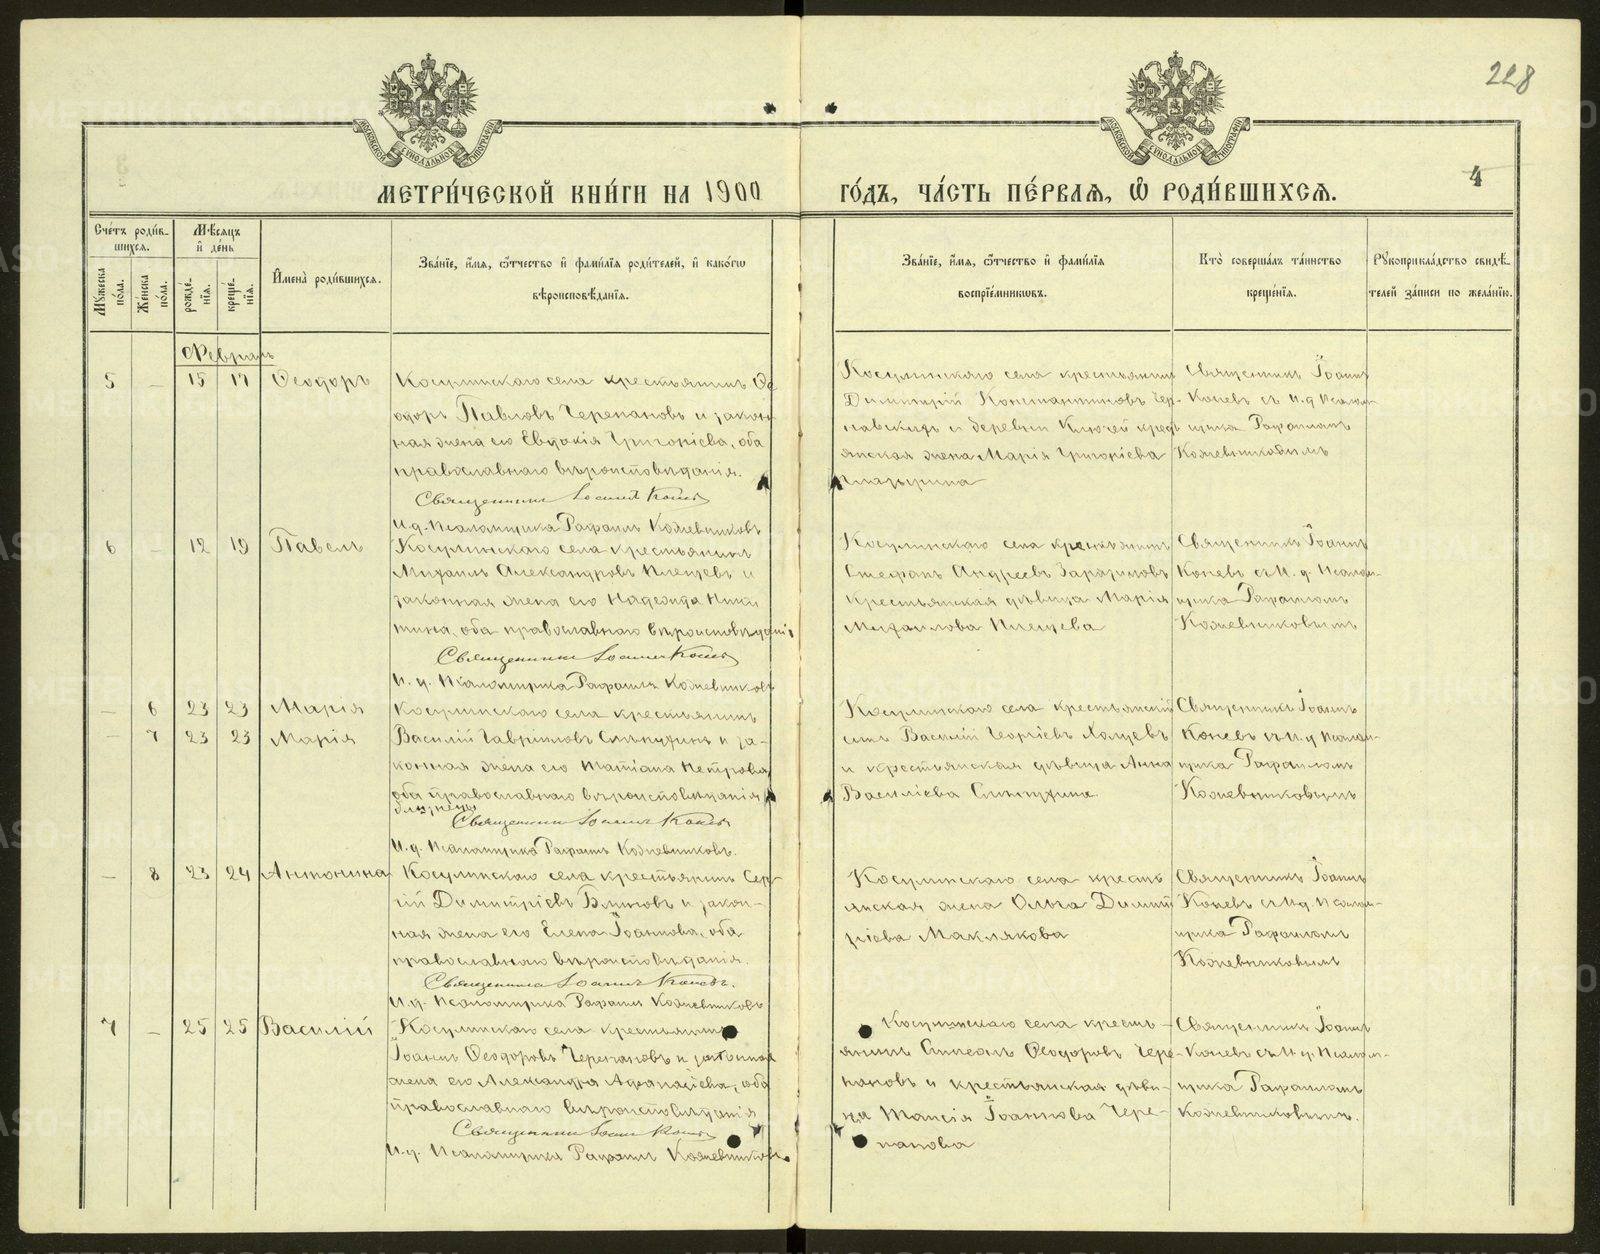 228
4
МЕТРИ́ЧЕСКОЙ КНИ́ГИ НА 1900 ГО́ДЪ, ЧА́СТЬ ПЕ́РВАѦ, Ѽ РОДИ́ВШИХСѦ.
Сче́тъ роди́вшихся.
Мѣ́сяцъ и де́нь
Му́жеска по́ла.
Же́нска по́ла.
рожде́нїя.
креще́нїя.
Имена̀ роди́вшихся.
Зва́нїе, и́мя, ѻ҆́тчество и фами́лїя роди́телей, и како́гѡ вѣроисповѣ́данїя.
Зва́нїе, и́мя, ѻ҆́тчество и фами́лїя воспрїе́мниковъ.
Кто̀ соверша́лъ та́инство креще́нїя.
Рукоприкла́дство свидѣ́телей за́писи по жела́нїю.
Февраль
5 – 15 17 Ѳеодоръ
Косулинскаго села крестьянинъ Ѳе
одоръ Павловъ Черепановъ и закон
ная жена его Евдокія Григоріева, оба
православнаго вѣроисповѣданія.
Священникъ Іоаннъ Коневъ
И.д. Псаломщика Рафаилъ Кожевниковъ
Косулинскаго села крестьянинъ
Димитрій Константиновъ Чер-
навскихъ и деревни Ключей крест
янская жена Марія Григоріева
Священникъ Іоаннъ
Коневъ съ И.д. Псалом-
щика Рафаиломъ
Кожевниковымъ
6 – 12 19 Павелъ
Косулинскаго села крестьянинъ
Михаилъ Александровъ Плещевъ и
законная жена его Надежда Ники
тина, оба православнаго вѣроисповѣданія
Священникъ Іоаннъ Коневъ
И.д. Псаломщика Рафаилъ Кожевниковъ
Косулинскаго села крестьянинъ
Стефанъ Андреевъ
крестьянская дѣвица Марія
Михаилова Плещева
Священникъ Іоаннъ
Коневъ съ И.д. Псалом-
щика Рафаиломъ
Кожевниковымъ
– 6 23 23 Марія
– 7 23 23 Марія
Косулинскаго села крестьянинъ
Василій Гавріиловъ Слѣпухинъ и за-
конная жена его Татіана Петрова,
оба православнаго вѣроисповѣданія
близнецы
Священникъ Іоаннъ Коневъ
И.д. Псаломщика Рафаилъ Кожевниковъ.
Косулинскаго села крестьянскій
сынъ Василій Георгіевъ Холуевъ
и крестьянская дѣвица Анна
Василіева Слѣпухина.
Священникъ Іоаннъ
Коневъ съ И.д. Псалом-
щика Рафаиломъ
Кожевниковымъ
– 8 23 24 Антонина
Косулинскаго села крестьянинъ Сер
гій Димитріевъ Блиновъ и закон-
ная жена его Елена Іоаннова, оба
православнаго вѣроисповѣданія.
Священникъ Іоаннъ Коневъ.
И.д. Псаломщика Рафаилъ Кожевниковъ
Косулинскаго села кресть
янская жена Ольга Димит
ріева Маклякова
Священникъ Іоаннъ
Коневъ съ И.д. Псалом-
щика Рафаиломъ
Кожевниковымъ
7 – 25 25 Василій
Косулинскаго села крестьянинъ
Іоаннъ Ѳеодоровъ Черепановъ и законная
жена его Александра Аѳанасіева, оба
православнаго вѣроисповѣданія
Священникъ Іоаннъ Коневъ
И.д. Псаломщика Рафаилъ Кожевниковъ.
Косулинскаго села кресть-
янинъ Симеонъ Ѳеодоровъ Чере-
пановъ и крестьянская дѣви-
ца Таисія Іоаннова Чере-
панова
Священникъ Іоаннъ
Коневъ съ И.д. Псалом-
щика Рафаиломъ
Кожевниковымъ.